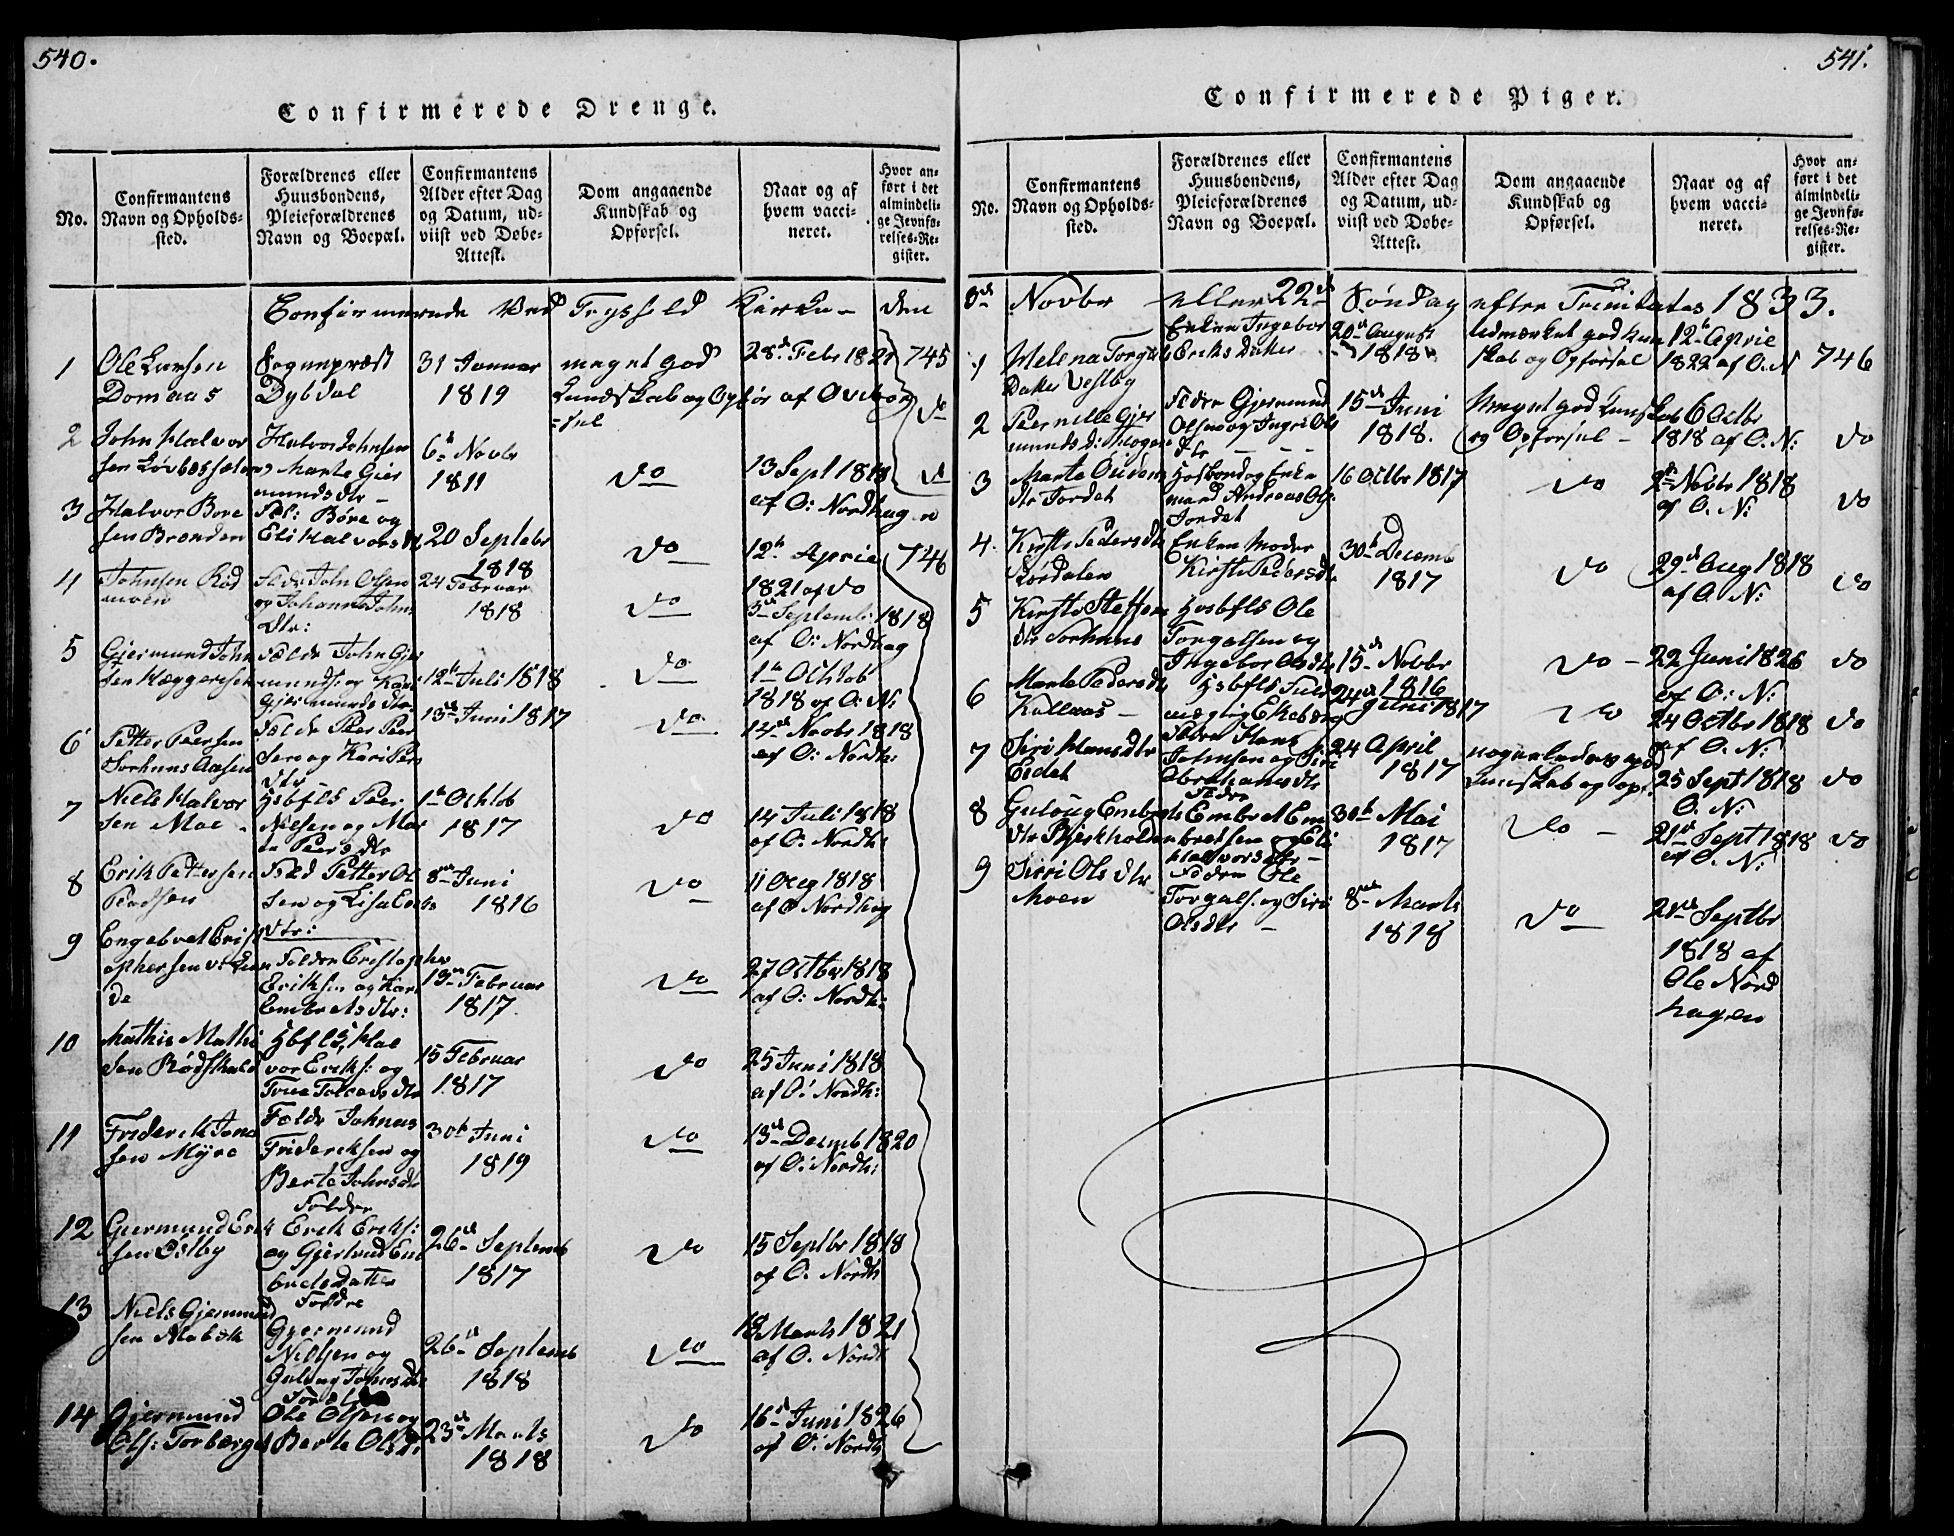 540.
Confirmerede Drenge.
No.
Confirmantens Navn og Opholds-sted.
Forældrenes eller Huusbondens, Pleieforældrenes Navn og Boepæl.
Confirmantens Alder efter Dag og Datum, ud-viist ved Døbe-Attest.
Dom angaaende Kundskab og Opførsel.
Naar og af hvem vacci-neret.
Hvor an-ført i det almindeli-ge Jevnfø-relses-Re-gister.
Confirmerede ved Trysild Kirke - den
1 Ole Larsen Domaas
Sognepræst Dybdal
31 Januar 1819
meget god Kundskab og Opfør-sel
28de Febr 1821
745
2 John Halvor sen
Halvor Johnsen Marte Gier munds dtr -
6te Novbr 1811
do
13 Sept 1818 af O: Nordhagen
do
3 Halvor Bore sen Brenden
Bore og Eli Halvorsdtr
20 Septebr 1818
do
12te April 1821 af do
746
4 Johnsen
John Olsen og Johanne Johns Dtr:
24 Februar 1818
do
Septemb: 1818 af O: Nordhag
5 Giermund John sen
John Gier munds: og Kari Gjermunds dtr
12te Juli 1818
do
1te Octob 1818 af O: N:
6 Petter Peersen Sorhuus Aasen
Peer Peer Sen og Kari Peers dtr
13de Juni 1817
do
14de Novbr 1818 af O: Nordh:
7 Niels Halvor sen Moe
Hsbfls Peer Nilsen og Mar te Peers dtr
1te Octob 1817
do
14 Juli 1818 af O: Nordh:
8 Erik Pettersen
Petter Ol Sen og Lisa dtr:
8de Juni 1816
do
11 Aug 1818 af O Nordhag
9 Engebret Crist ophersen
Foldre Cristopher Eriksen og Kari Embretsdtr:
19de Februar 1817
do
27 Octbr 1818 af O: Nordh:
10 Mathis Mathi sen
Hbfls Hal vor Eriks: og
15 Februar 1817
do
25 Juni 1818 af O: Nordh:
11 Friderik Jona sen Myre
Foldr Johnas Frideriksen og Berte Johnsdtr
30te Juni 1819
do
13de Decmb 1820 af O: Nordh:
12 Gjermund Erik sen Østby
Foldre Erik Eriks: og Gjertrud Em datter
26de Septemb 1817
do
15 Septbr 1818 af O: Nordh
13 Niels Gjermund sen
Foldre Gjermund Nilsen og Guloug Johnsdtr
26de Septemb 1818
do
18 Marts 1821 af O. Nordh
14 Gjermund Ols: Torberget
Ole Olsen og Berte Olsdtr
23de Marts 1818
do
16de Juni 1826 af O: Nordh
541.
Confirmerede Piger.
No.
Confirmantens Navn og Opholds-sted.
Forældrenes eller Huusbondens, Pleieforældrenes Navn og Boepæl.
Confirmantens Alder efter Dag og Datum, ud-viist ved Døbe-Attest.
Dom angaaende Kundskab og Opførsel.
Naar og af hvem vacci-neret.
Hvor an-ført i det almindeli-ge Jevnfø-relses-Re-gister.
3de Novbr eller 22de Søndag efter Trinitates 1833.
1 Helena Torgals Datter Vestby
Enken Ingebor Eriks Datter
20de August 1818
Udmærket god Kund skab og Opførsel
12te April 1822 af O. N
746
2 Pernille Gjer munds d:
Gjermund Olsen og Ingri Ols dtr
15de Juni 1818.
Meget god Kundskab og Opførsel -
6 Octbr 1818 af O: N:
do
3 Marte dtr Jordet
Andreas Ols: Jordet
16 Octbr 1817
do
Novbr 1818 af O. N:
do
4. Kirsti Peders dtr Rørdalen
Enken Moder Kirsti Pedersdtr
30te Decemb 1817
do
29de Aug 1818 af O. N:
do
5 Kirsti Steffens dtr Sorhuus
Hosbfls Ole Torgalsen og Ingebor Olsdtr
15de Novbr 1816
do
22 Juni 1826 af O: N:
do
6 Marte Pedersdtr
24de Juni 1817
do
24 Octbr 1818 af O. N:
do
7 Siri Hansdtr Eidet
Hans Johnsen og Siri Abrahamsdtr
24 April 1817
nogenledes god Kundskab og opf.
25 Sept 1818 O. N:
do
8 Guloug Embrets dtr
Foldre Embret Em bretsen og Eli Halvors dtr -
30te Mai 1817
do
21de Sept 1818 af O. N:
do
9 Sirri Ols dtr Moen
Foldre Ole Torgals: og Siri Olsdtr
8de Marts 1818
do
Septbr 1818 af Ole Nord hagen